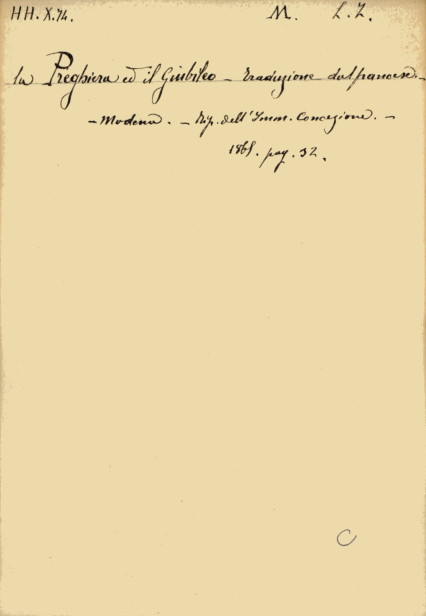 HH. X. 74. M. L. Z.
la Preghiera ed il Giubileo - Traduzione dal francese. -
- Modena. - Tip. dell'Imm. Concezione. -
pag. 32.
C